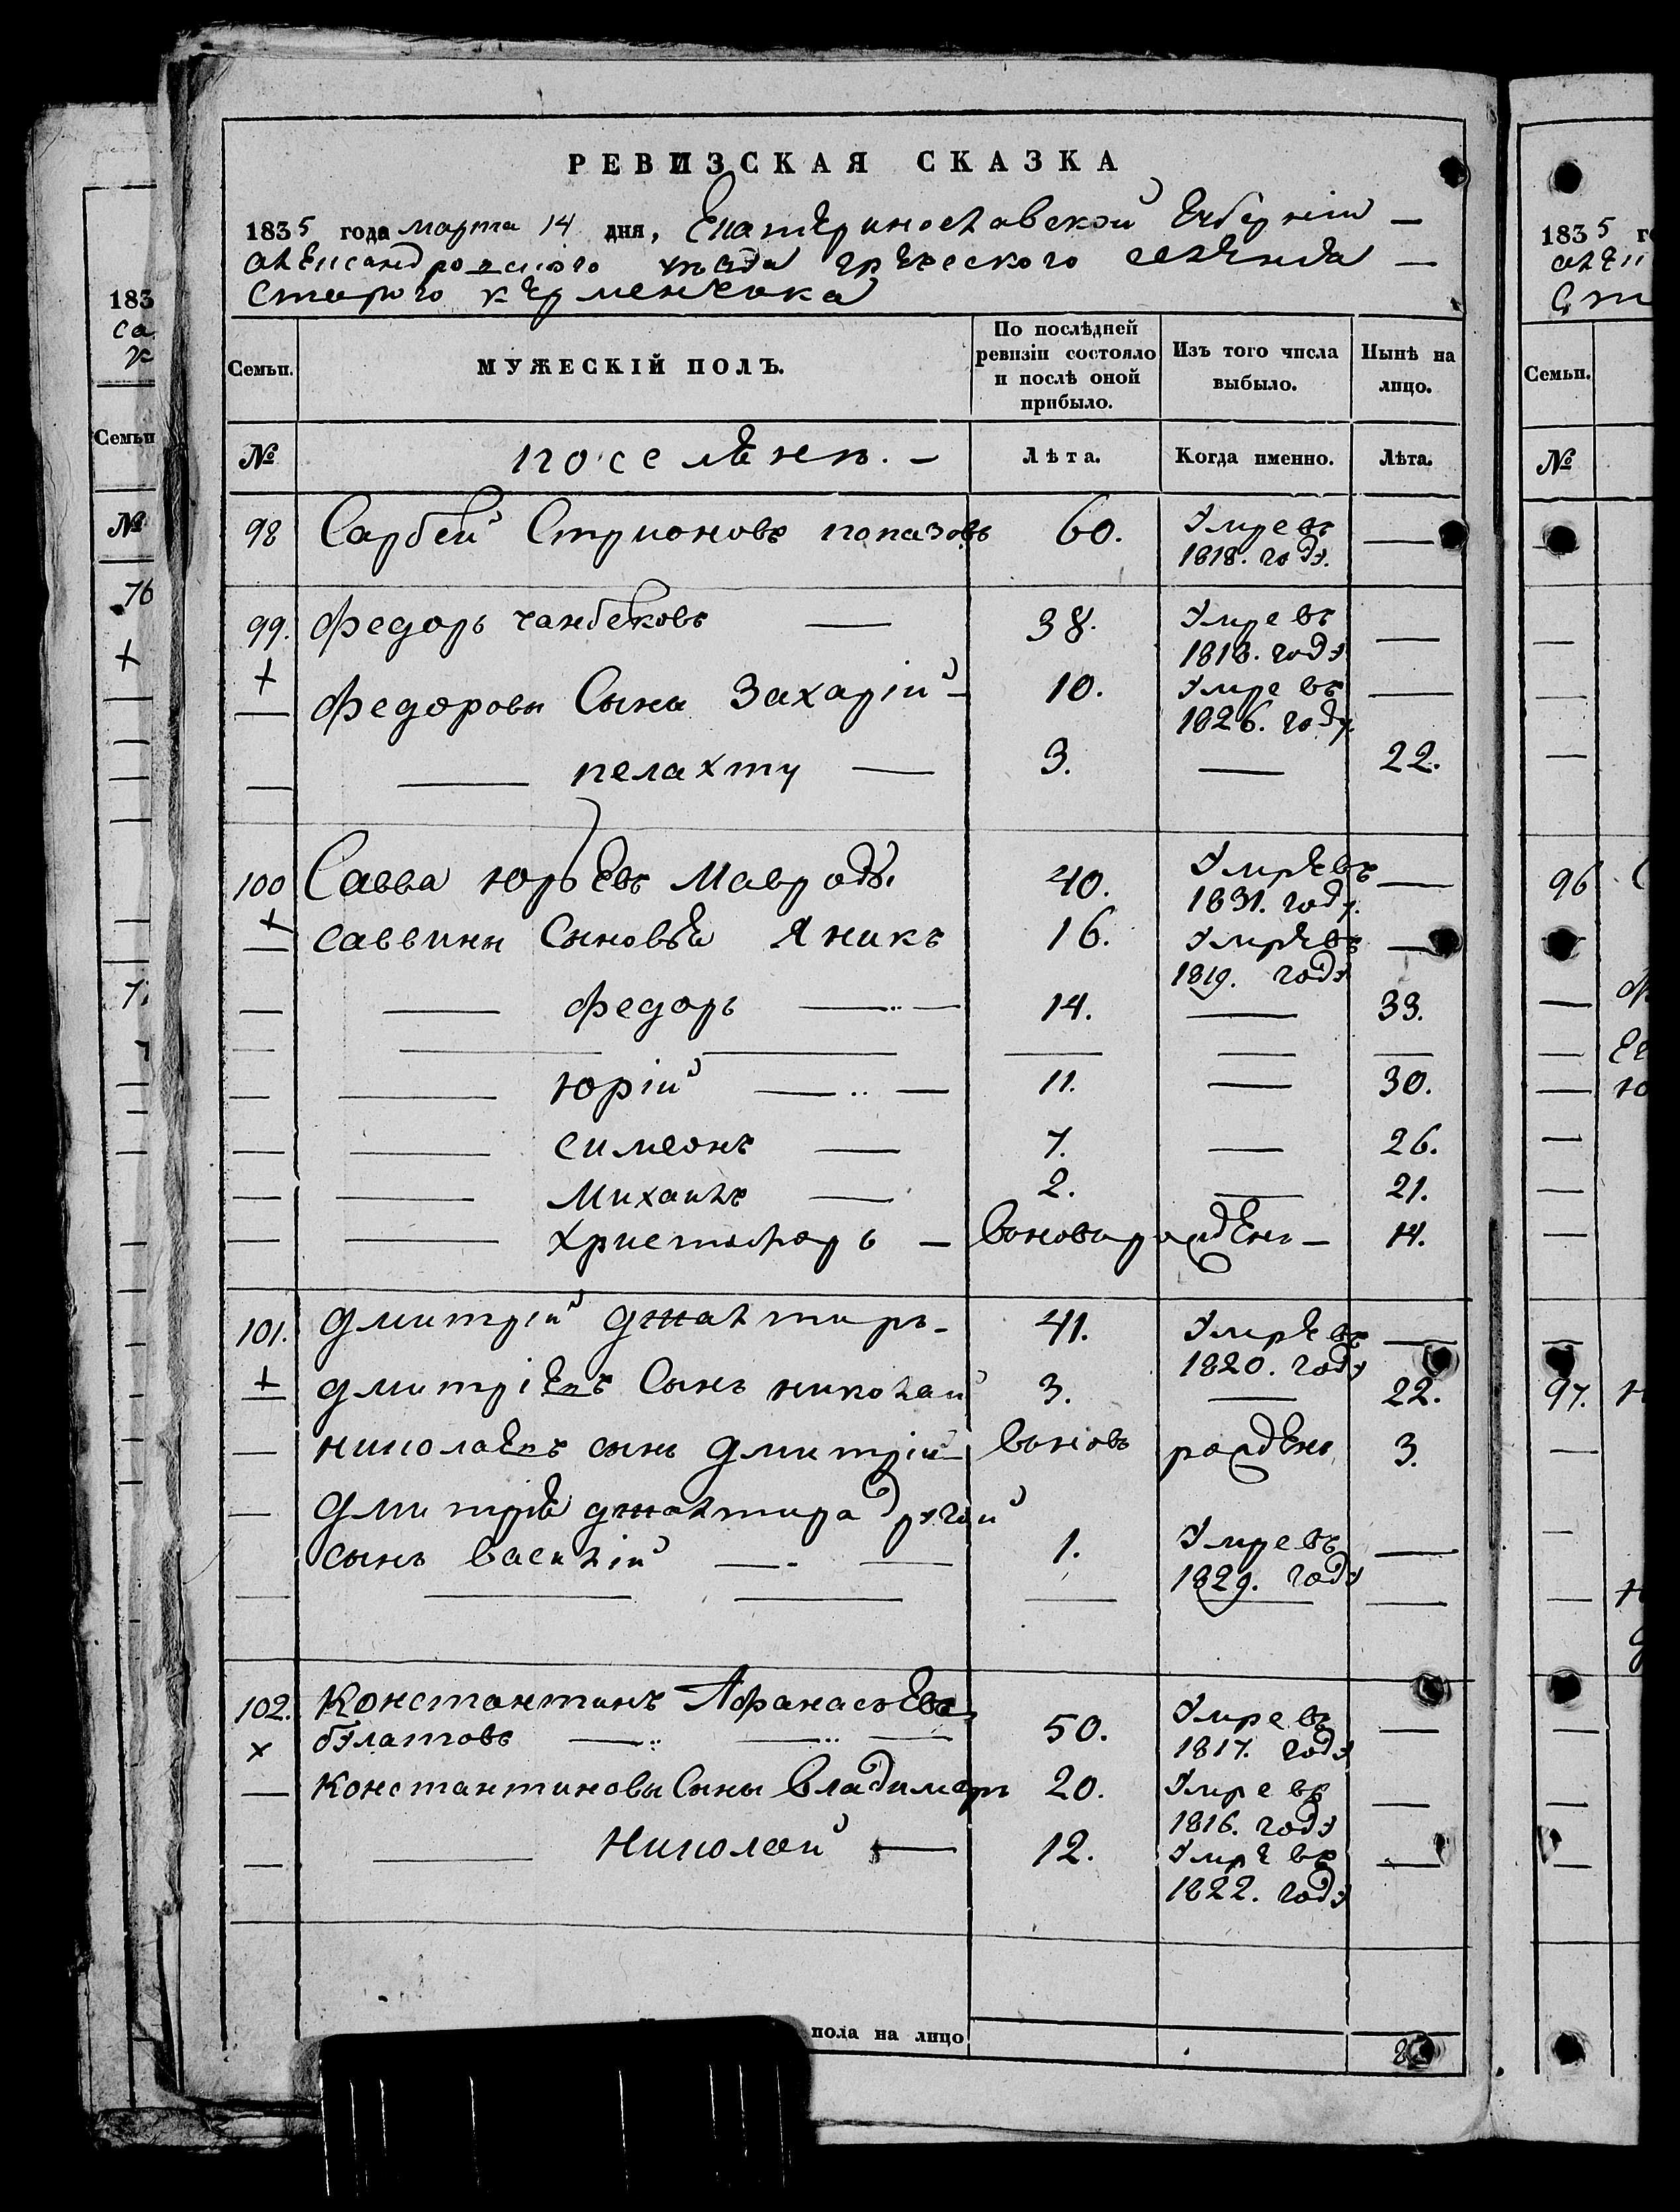 РЕВИЗСКАЯ СКАЗКА
1835 года марта 14 дня, Екатеринославской губерніи —
александровского уезда греческого селенія —
Старого керменчика
Семьи. МУЖЕСКІЙ ПОЛЪ. По послѣдней ревизіи состояло и послѣ оной прибыло. Изъ того числа выбыло. Нынѣ на лицо.
№ поселѣнъ. — Лѣта. Когда именно. Лѣта.
98 Сарбей Стрионовъ попазовъ 60. Умре въ —
1818. году.
99. Федоръ чанбековъ — 38. Умре въ —
1818. году
+ Федоровы Сыны Захарій — 10. Умре въ —
1826. году.
— — пелахту — 3. — 22.
100 Савва юрьевъ Мавроды. 40. Умре въ —
1831. году.
+ саввины Сыновья Яникъ 16. Умре въ —
1819. году
— — федоръ — 14. — 33.
— — юрій — 11. — 30.
— — симеонъ — 7. — 26.
— — Михаилъ — 2. — 21.
— — христофоръ — вновь рожденъ — 14.
101. дмитрій джалтиръ — 41. Умре въ —
1820. году
+ дмитріевъ Сынъ николай 3. — 22.
— николаевъ сынъ дмитрій — вновь рожденъ 3.
— дмитрія джалтира другой
сынъ василій — 1. Умре въ —
1829. году
102. Константинъ Афанасьевъ
× булатовъ — 50. Умре въ —
1817. году
— константиновы Сыны Владимеръ 20. Умре въ —
1816. году
— — Николай — 12. Умре въ —
1822. году
пола на лицо
1835
Семьи.
№
96
97.
183
са
Семьи
№
76
+